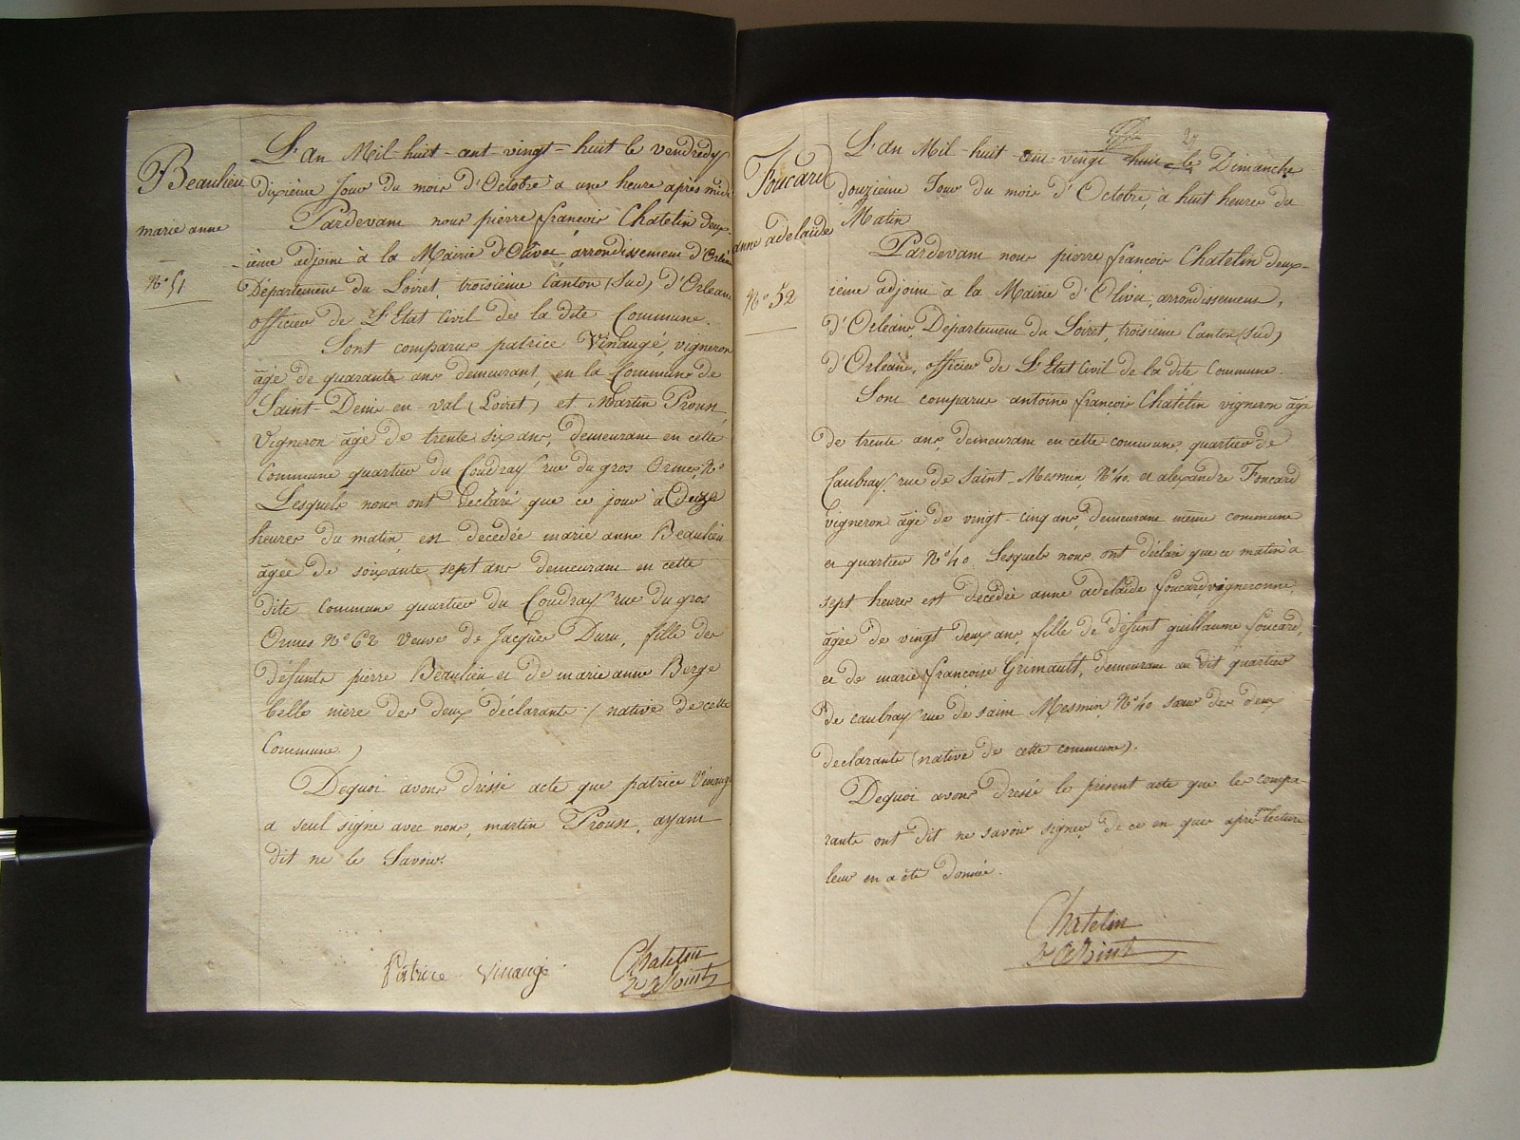 Beaulieu
marie anne
N.° 51
L'an Mil huit-cent-vingt-huit le vendredy
dixième Jour du mois d'Octobre à une heure après midi
Pardevant nous pierre françois Chatelin deux-
ième adjoint à la Mairie d'Olivet arrondissement d'Orléans
Département du Loiret, troisième Canton (Sud) d'Orléans
officier de L'Etat Civil de la dite Commune.
Sont comparus patrice Vinaugé, vigneron
âgé de quarante ans demeurant, en la Commune de
Saint-Denis-en-val (Loiret) et Martin Proust,
Vigneron âgé de trente six ans, demeurant en cette
Commune quartier du Coudray rue du gros Ormes, N°
Lesquels nous ont déclaré que ce jour à
heures du matin, est décédée marie anne Beaulieu
âgée de soixante sept ans demeurant en cette
dite Commune quartier du Coudray rue du gros
Ormes N° 62 veuve de Jacques Duru, fille des
défunts pierre Beaulieu et de marie anne Berge
belle mère des deux déclarants (native de cette
Commune)
Dequoi avons dressé acte que patrice Vinaugé
a seul signé avec nous, martin Proust, ayant
dit ne le Savoir.
Patrice Vinaugé
Chatelin
2e Adjoint
27
Foucard
anne adelaïde
N.° 52
L'an Mil-huit-cent-vingt-huit-le Dimanche
douzième Jour du mois d'Octobre, à huit heures du
Matin
Pardevant nous pierre françois Chatelin deux-
ième adjoint à la Mairie d'Olivet, arrondissement,
d'Orléans, Département du Loiret, troisième Canton (Sud)
d'Orléans, officier de L'Etat Civil de la dite Commune.
Sont comparus antoine françois Chatelin vigneron âgé
de trente ans, demeurant en cette commune, quartier de
Caubray, rue de Saint-Mesmin, N° 40. et alexandre Foucard
vigneron âgé de vingt-cinq ans, demeurant même commune
et quartier N° 40. Lesquels nous ont déclaré que ce matin à
sept heures est décédée anne adelaïde foucard, vigneronne,
âgée de vingt deux ans, fille de défunt guillaume foucard,
et de marie françoise Grimault, demeurant au dit quartier
de caubray rue de saint Mesmin, N° 40 sœur des deux
declarants (native de cette commune).
Dequoi avons dressé le présent acte que les compa-
rants ont dit ne savoir signer de ce enquis après lecture
leur en a été donnée.
Chatelin
2e Adjoint